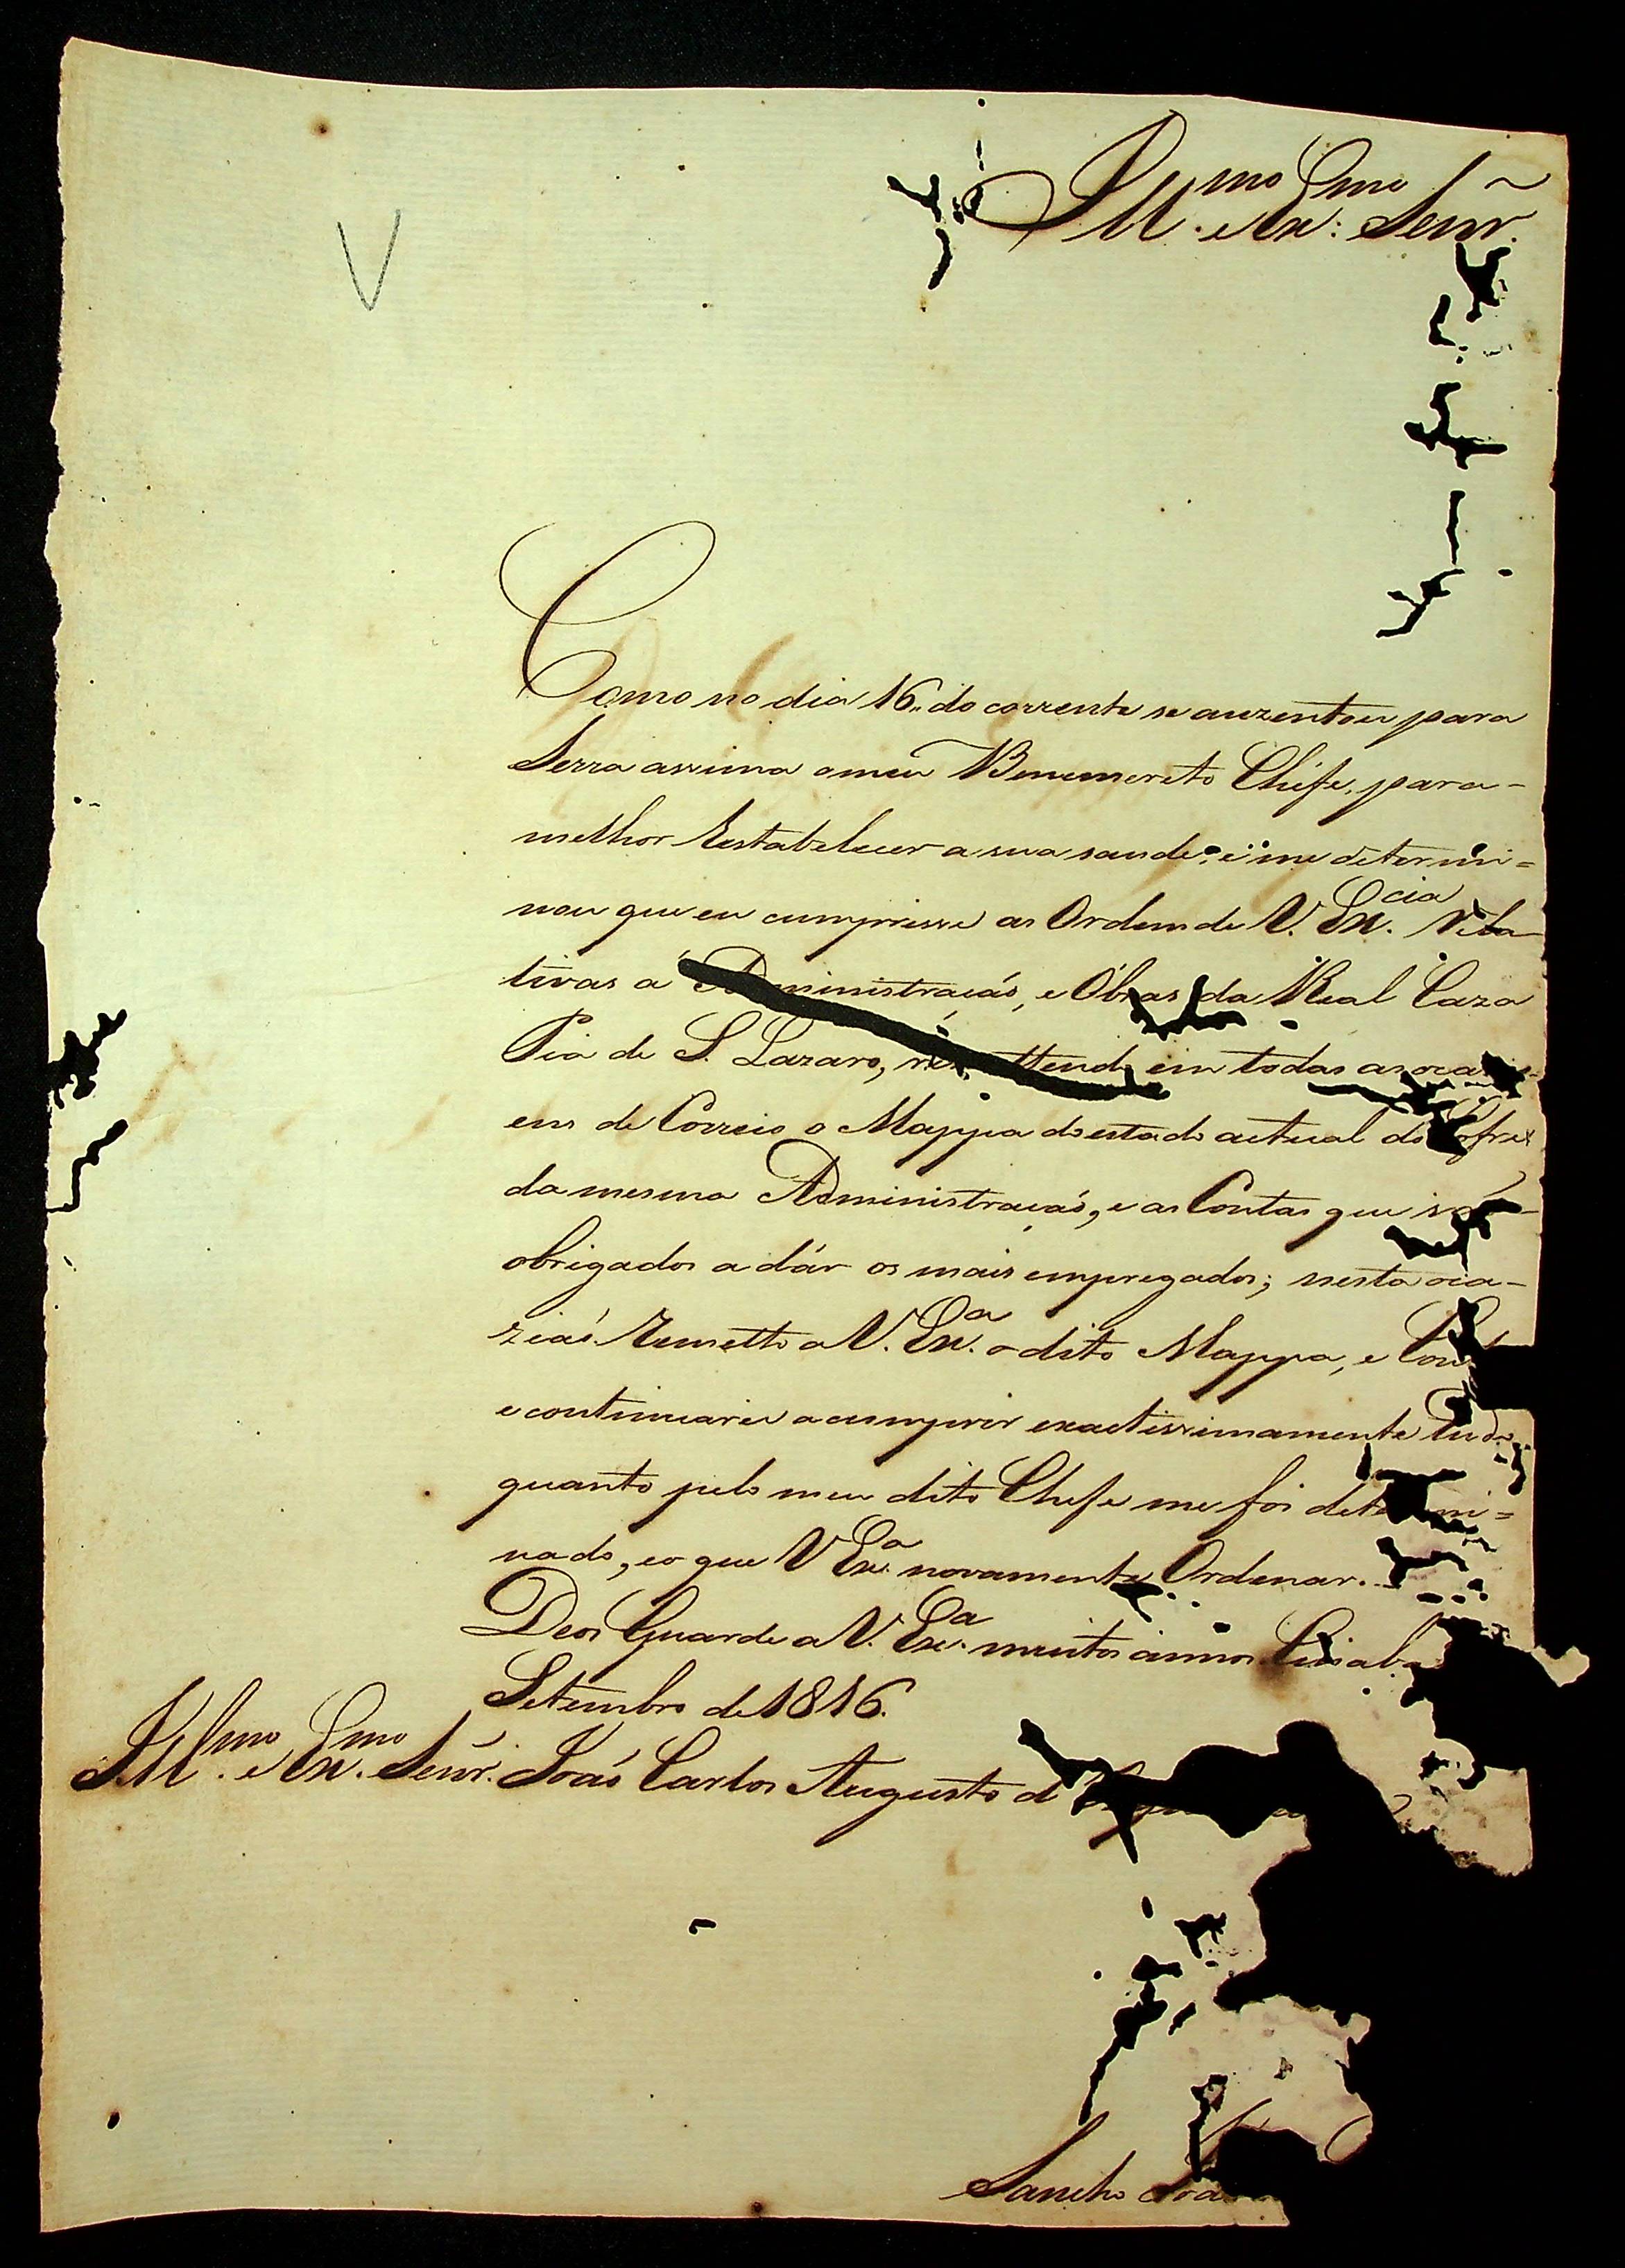 Ill.mo e Ex.mo Senr.
Como no dia 16,, do corrente se auzentou para
Serra assima o meu Benemerito Chefe, para
melhor Restabelecer a sua saude, e me determi=
nou que eu cumprisse as Ordens de V. Ex.cia Rela
tivas a Administração, e Obras da Real Caza
Pia de S. Lazaro, remettendo em todas as oca
ens de Correio o Mappa do estado actual do Cofre
da mesma Administração, e as Contas que são
obrigados a dár os mais empregados; nesta oca-
zião Remetto a V. Ex.a o dito Mappa, e
e continuarei a cumprir exactissimamente tudo
quanto pelo meu dito Chefe me foi determi=
nado, e o que V Ex.a novamente Ordenar.
Deos Guarde a V. Ex.a muitos annos
Setembro de 1816.
Ill.mo e Ex.mo Senr. João Carlos Augusto d'
Sancho